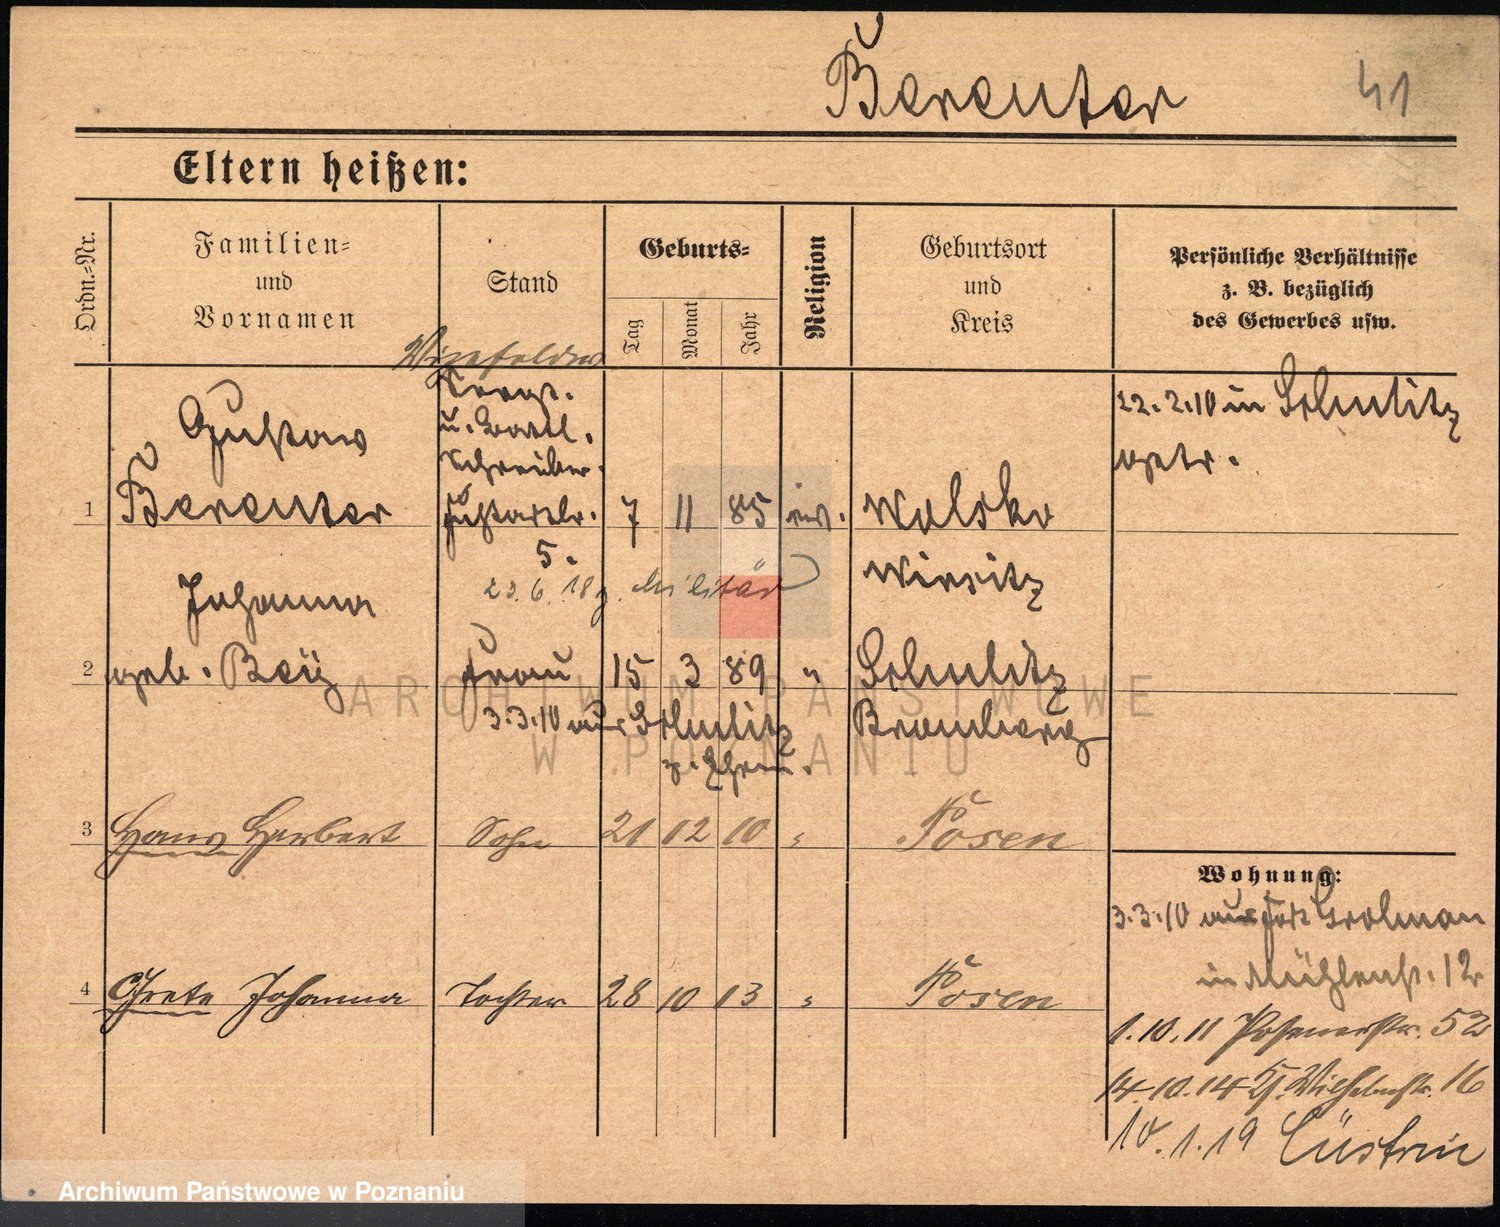 Berenter 41
Eltern heißen:
Ordn.-Nr.
Familien-
und
Vornamen
Stand
Geburts-
Tag
Monat
Jahr
Religion
Geburtsort
und
Kreis
Persönliche Verhältnisse
z. B. bezüglich
des Gewerbes usw.
Vizefeldw
Sergt.
u.
Schreiber
Gustav
1 Berenter 7 11 85 ev. Wolsko
5.
Wirsitz
22.2.10 in Schulitz
getr.
23.6.18 z. Militär
Johanna
2 geb. Frau 15 3 89 " Schulitz
3.3.10 aus Schulitz
Bromberg
z. Ehem.
3 Hans Herbert Sohn 21 12 10 " Posen
4 Grete Johanna Tochter 28 10 13 " Posen
Wohnung:
3.3.10 aus Fort Grolman
in Mühlenst. 12
1.10.11 Posenerstr. 52
14.10.14 Wilhelmstr. 16
10.1.19 Cüstrin
ARCHIWUM PAŃSTWOWE
W POZNANIU
Archiwum Państwowe w Poznaniu